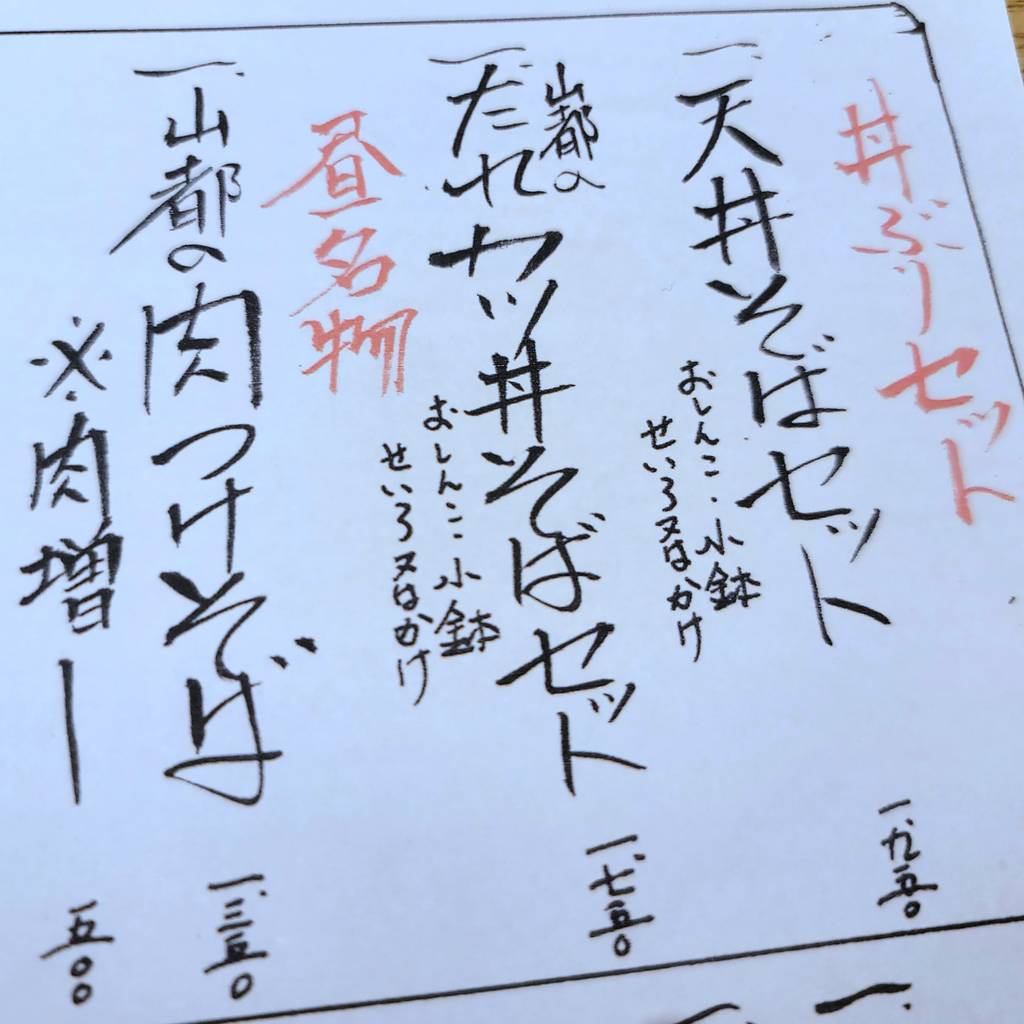 丼ぶりセット
一、天丼そばセット
おしんこ・小鉢
せいろ又はかけ
一、九五〇
一、山都の
たれカツ丼そばセット
おしんこ・小鉢
せいろ又はかけ
一、七五〇
昼名物
一、山都の肉つけそば
一、三五〇
※肉増し
五〇〇